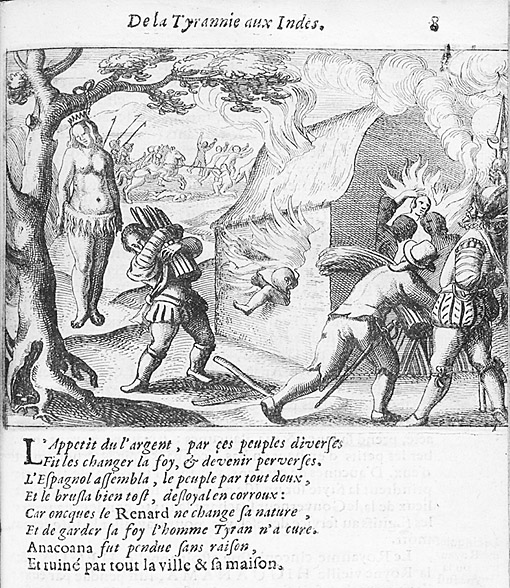 De la Tyrannie aux Indes. 8
L'Appetit du l'argent, par çes peuples diverses
Fit les changer la foy, & devenir perverses.
L'Espagnol assembla, le peuple par tout doux,
Et le brusla bien tost, desloyal en corroux:
Car oncques le Renard ne change sa nature,
Et de garder sa foy l'homme Tyran n'a cure.
Anacoana fut pendue sans raison,
Et ruiné par tout la ville & sa maison.